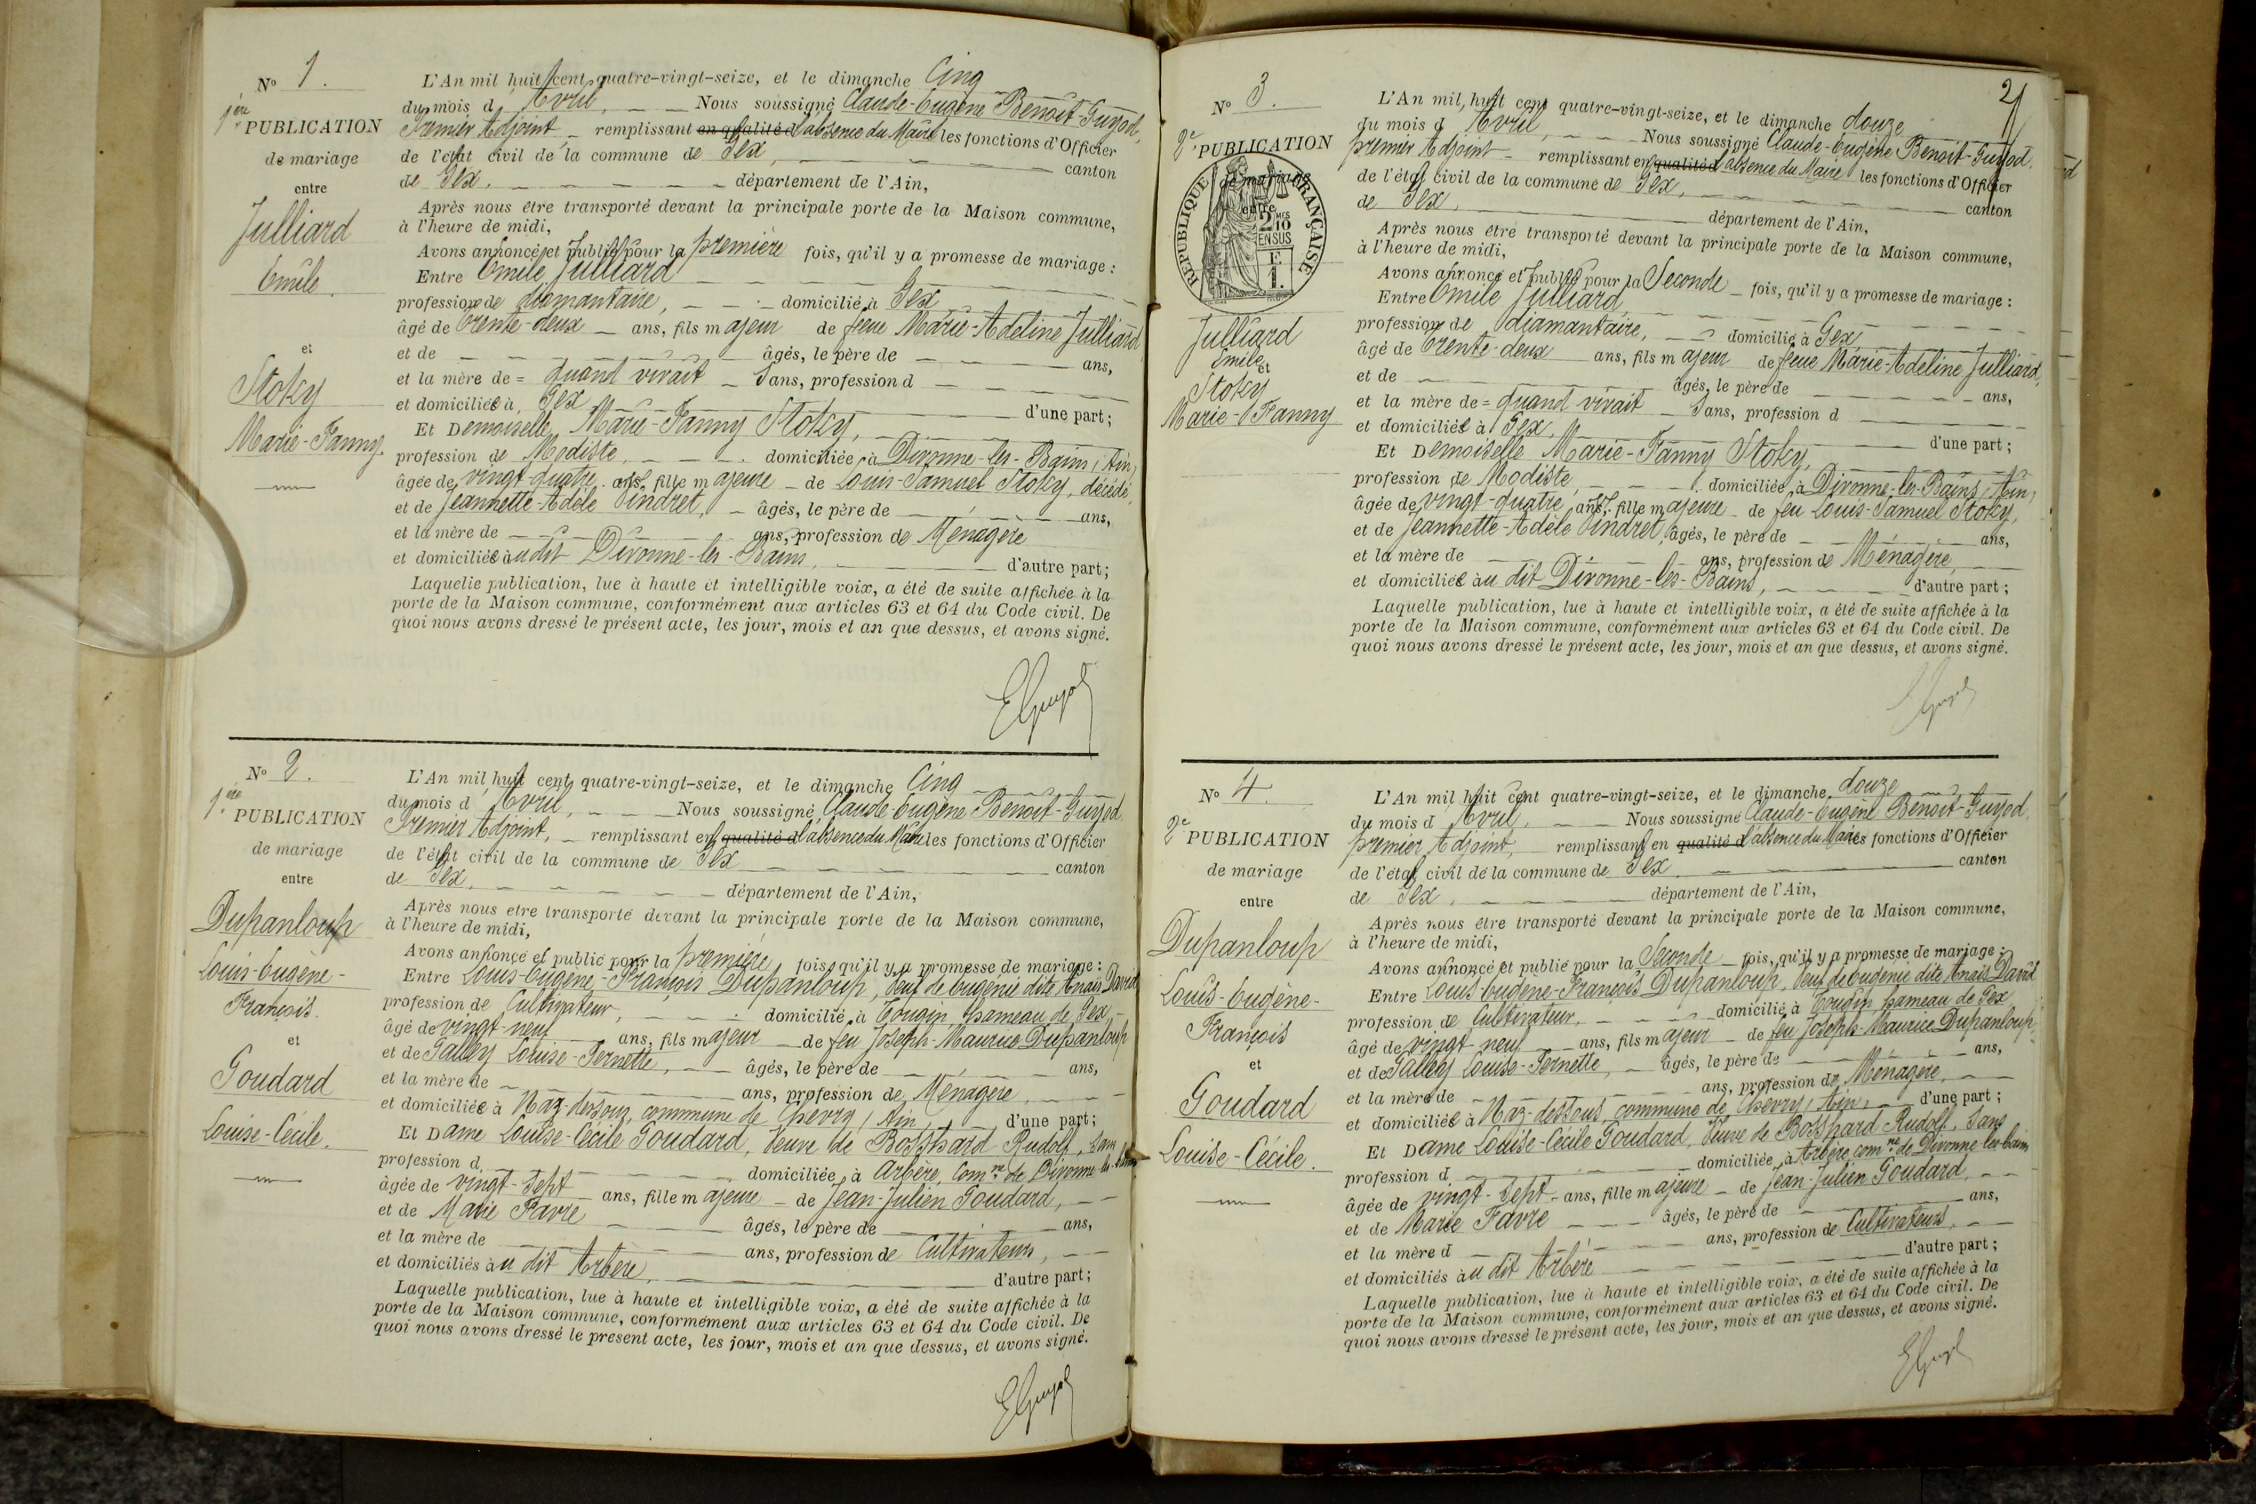 N° 1.
1ère PUBLICATION
de mariage
entre
Julliard
Emile.
et
Stoky
Marie-Fanny.
L'An mil huit cent quatre-vingt-seize, et le dimanche Cinq
du mois d'Avril, Nous soussigné Claude-Eugène Benoit-Guyod,
Premier Adjoint, remplissant en qualité d l'absence du Maire les fonctions d'Officier
de l'état civil de la commune de Gex, canton
de Gex. département de l'Ain,
Après nous être transporté devant la principale porte de la Maison commune,
à l'heure de midi,
Avons annoncé et publié pour la première fois, qu'il y a promesse de mariage :
Entre Emile Julliard
profession de diamantaire, domicilié à Gex
âgé de trente-deux ans, fils majeur de feue Marie-Adeline Julliard
et de âgés, le père de ans,
et la mère de = quand vivait Sans, profession d
et domiciliée à Gex d'une part ;
Et Demoiselle Marie-Fanny Stoky,
profession de Modiste, domiciliée à Divonne-les-Bains (Ain)
âgée de vingt-quatre ans, fille majeure de Louis-Samuel Stoky, décédé,
et de Jeannette-Adèle Pindret, âgés, le père de ans,
et la mère de ans, profession de Ménagère
et domiciliée audit Divonne-les-Bains, d'autre part ;
Laquelle publication, lue à haute et intelligible voix, a été de suite affichée à la
porte de la Maison commune, conformément aux articles 63 et 64 du Code civil. De
quoi nous avons dressé le présent acte, les jour, mois et an que dessus, et avons signé.
EGuyod
N° 2.
1ère PUBLICATION
de mariage
entre
Dupanloup
Louis-Eugène-
François.
et
Goudard
Louise-Cécile.
L'An mil huit cent quatre-vingt-seize, et le dimanche Cinq
du mois d'Avril, Nous soussigné Claude-Eugène Benoit-Guyod
Premier Adjoint, remplissant en qualité d l'absence du Maire les fonctions d'Officier
de l'état civil de la commune de Gex canton
de Gex. département de l'Ain,
Après nous être transporté devant la principale porte de la Maison commune,
à l'heure de midi,
Avons annoncé et publié pour la première fois, qu'il y a promesse de mariage :
Entre Louis-Eugène-François Dupanloup, Veuf de Eugénie dite Anaïs David
profession de Cultivateur, domicilié à Tougin, hameau de Gex
âgé de vingt-neuf ans, fils majeur de feu Joseph-Maurice Dupanloup
et de Galley Louise-Pernette, âgés, le père de ans,
et la mère de ans, profession de Ménagère,
et domiciliée à Naz-dessous, commune de Chevry (Ain) d'une part ;
Et Dame Louise-Cécile Goudard, Veuve de Bosshard Rudolf, Sans
profession d domiciliée à Arbère, Comne de Divonne-les-Bains
âgée de vingt-sept ans, fille majeure de Jean-Julien Goudard,
et de Marie Favre âgés, le père de ans,
et la mère de ans, profession de Cultivateurs,
et domiciliés au dit Arbère, d'autre part ;
Laquelle publication, lue à haute et intelligible voix, a été de suite affichée à la
porte de la Maison commune, conformément aux articles 63 et 64 du Code civil. De
quoi nous avons dressé le présent acte, les jour, mois et an que dessus, et avons signé.
EGuyod
2
N° 3.
2e PUBLICATION
de mariage
entre
RÉPUBLIQUE FRANÇAISE
2/10 MES
EN SUS
F.
1.
Julliard
Emile
et
Stoky
Marie-Fanny
L'An mil huit cent quatre-vingt-seize, et le dimanche douze
du mois d'Avril, Nous soussigné Claude-Eugène Benoit-Guyod.
premier Adjoint remplissant en qualité d l'absence du Maire les fonctions d'Officier
de l'état civil de la commune de Gex, canton
de Gex, département de l'Ain,
Après nous être transporté devant la principale porte de la Maison commune,
à l'heure de midi,
Avons annoncé et publié pour la Seconde fois, qu'il y a promesse de mariage :
Entre Emile Julliard
profession de diamantaire, domicilié à Gex
âgé de trente-deux ans, fils majeur de feue Marie-Adeline Julliard,
et de âgés, le père de ans,
et la mère de = quand vivait Sans, profession d
et domiciliée à Gex, d'une part ;
Et Demoiselle Marie-Fanny Stoky,
profession de Modiste, domiciliée à Divonne-les-Bains (Ain)
âgée de vingt-quatre ans, fille majeure de feu Louis-Samuel Stoky,
et de Jeannette-Adèle Pindret, âgés, le père de ans,
et la mère de ans, profession de Ménagère,
et domiciliée au dit Divonne-les-Bains, d'autre part ;
Laquelle publication, lue à haute et intelligible voix, a été de suite affichée à la
porte de la Maison commune, conformément aux articles 63 et 64 du Code civil. De
quoi nous avons dressé le présent acte, les jour, mois et an que dessus, et avons signé.
EGuyod
N° 4.
2e PUBLICATION
de mariage
entre
Dupanloup
Louis-Eugène-
François
et
Goudard
Louise-Cécile.
L'An mil huit cent quatre-vingt-seize, et le dimanche douze
du mois d'Avril, Nous soussigné Claude-Eugène Benoit-Guyod.
premier Adjoint, remplissant en qualité d l'absence du Maire les fonctions d'Officier
de l'état civil de la commune de Gex. canton
de Gex, département de l'Ain,
Après nous être transporté devant la principale porte de la Maison commune,
à l'heure de midi,
Avons annoncé et publié pour la Seconde fois, qu'il y a promesse de mariage :
Entre Louis-Eugène-François Dupanloup, Veuf de Eugénie dite Anaïs David
profession de Cultivateur, domicilié à Tougin, hameau de Gex
âgé de vingt-neuf ans, fils majeur de feu Joseph-Maurice Dupanloup
et de Galley Louise-Pernette, âgés, le père de ans,
et la mère de ans, profession de Ménagère,
et domiciliée à Naz-dessous, commune de Chevry (Ain), d'une part ;
Et Dame Louise-Cécile Goudard, Veuve de Bosshard Rudolf, Sans
profession d domiciliée à Arbère, comne de Divonne-les-bains
âgée de vingt-sept ans, fille majeure de Jean-Julien Goudard,
et de Marie Favre âgés, le père de ans,
et la mère d ans, profession de Cultivateurs,
et domiciliés au dit Arbère d'autre part ;
Laquelle publication, lue à haute et intelligible voix, a été de suite affichée à la
porte de la Maison commune, conformément aux articles 63 et 64 du Code civil. De
quoi nous avons dressé le présent acte, les jour, mois et an que dessus, et avons signé.
EGuyod